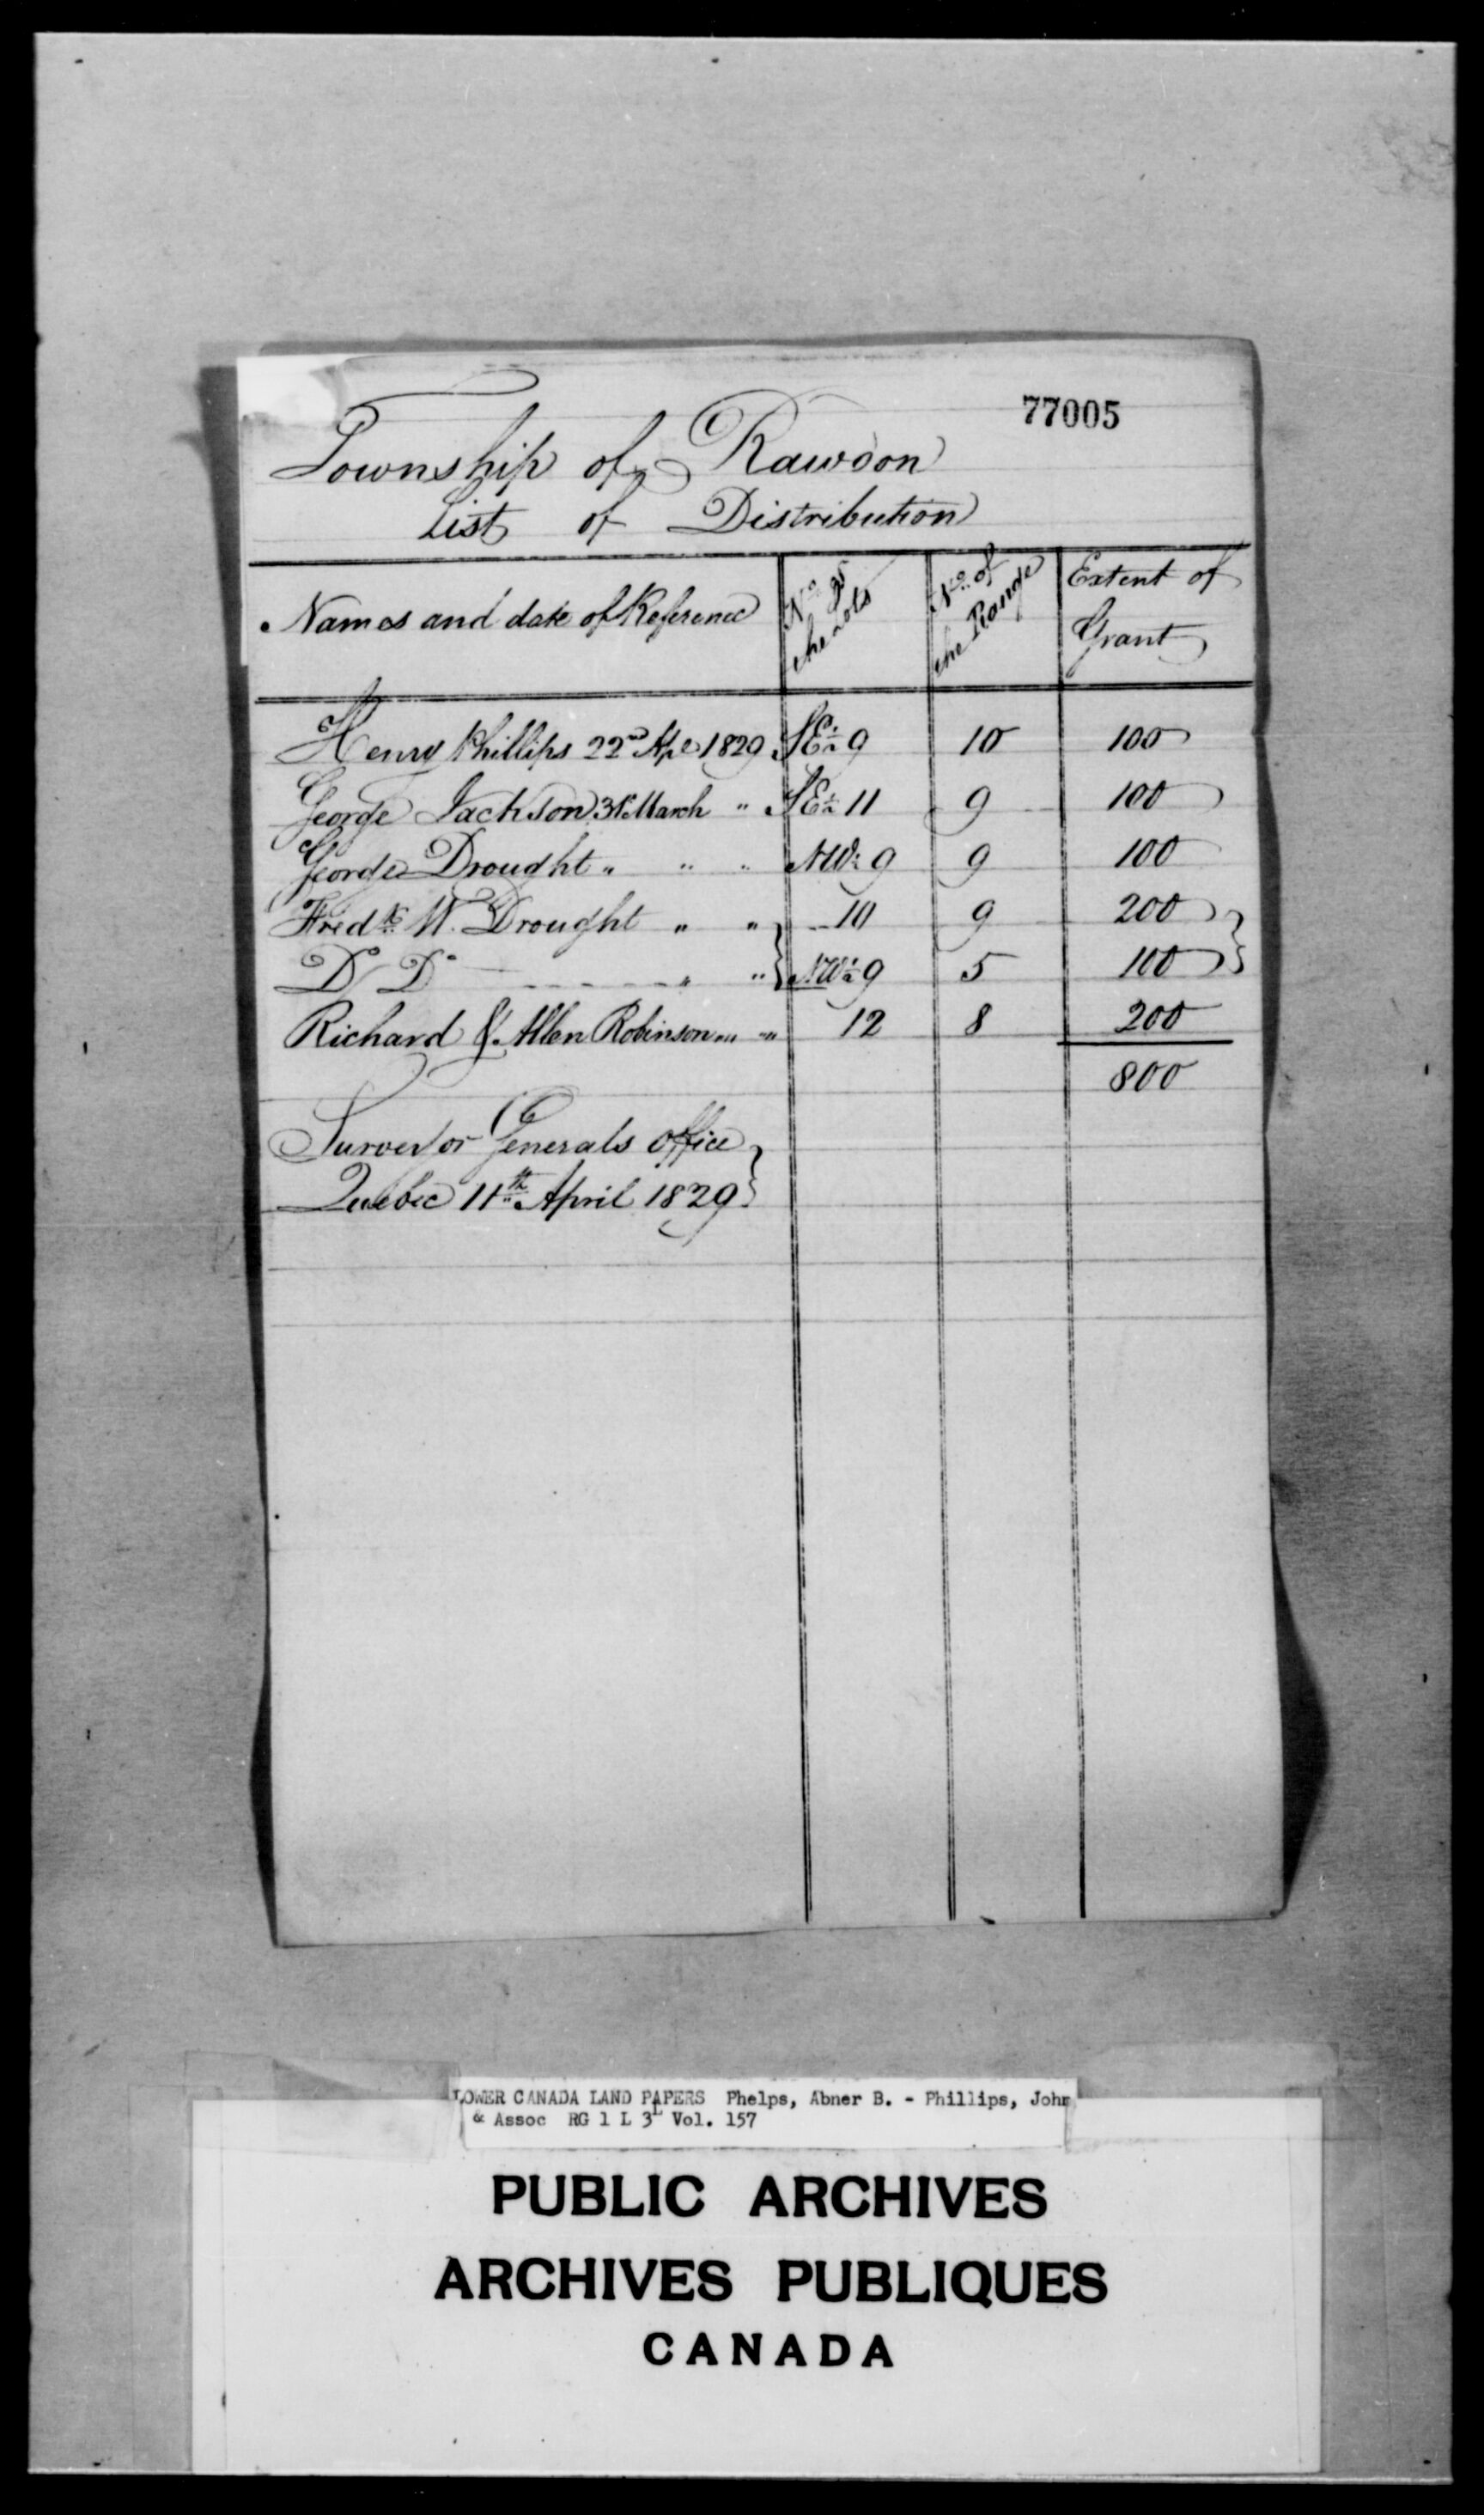 77005
Township of Rawdon
List of Distribution
Names and date of Reference | No. of the Lots | No. of the Range | Extent of Grant
Henry Phillips 22nd Apl 1829 | SE ½ 9 | 10 | 100
George Jackson 31st March " | SE ½ 11 | 9 | 100
George Drought " " " | NW ½ 9 | 9 | 100
Fredk W. Drought " " | 10 | 9 | 200
Do Do " " | NW ½ 9 | 5 | 100
Richard J. Allen Robinson " " | 12 | 8 | 200
800
Surveyor Generals office
Quebec 11th April 1829
LOWER CANADA LAND PAPERS Phelps, Abner B. - Phillips, John
& Assoc RG 1 L 3L Vol. 157
PUBLIC ARCHIVES
ARCHIVES PUBLIQUES
CANADA